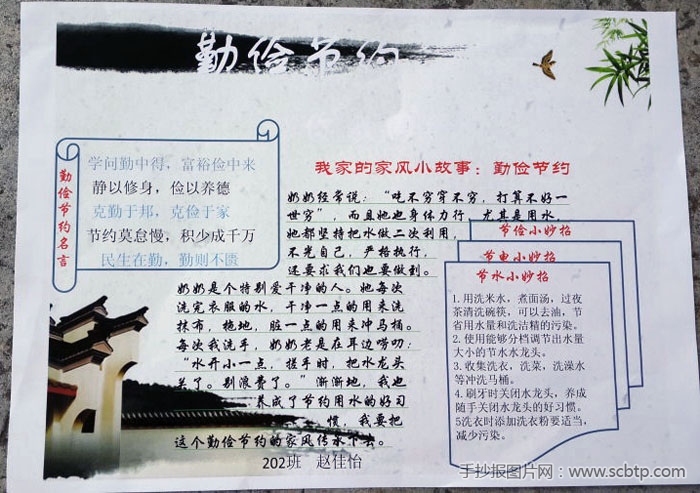 勤俭节约
勤俭节约名言
学问勤中得，富裕俭中来
静以修身，俭以养德
克勤于邦，克俭于家
节约莫怠慢，积少成千万
民生在勤，勤则不匮
我家的家风小故事：勤俭节约
奶奶经常说：“吃不穷穿不穷，打算不好一
世穷”，而且她也身体力行，尤其是用水，
她都坚持把水做二次利用，
不光自己，严格执行，
还要求我们也要做到。
奶奶是个特别爱干净的人。她每次
洗完衣服的水，干净一点的用来洗
抹布，拖地，脏一点的用来冲马桶。
每次我洗手，奶奶老是在耳边唠叨：
“水开小一点，搓手时，把水龙头
关了。别浪费了。”渐渐地，我也
养成了节约用水的好习
惯，我要把
这个勤俭节约的家风传水下去。
202班 赵佳怡
节俭小妙招
节电小妙招
节水小妙招
1.用洗米水，煮面汤，过夜
茶清洗碗筷，可以去油，节
省用水量和洗洁精的污染。
2.使用能够分档调节出水量
大小的节水水龙头。
3.收集洗衣，洗菜，洗澡水
等冲洗马桶。
4.刷牙时关闭水龙头，养成
随手关闭水龙头的好习惯。
5洗衣时添加洗衣粉要适当，
减少污染。
手抄报图片网：www.scbtp.com